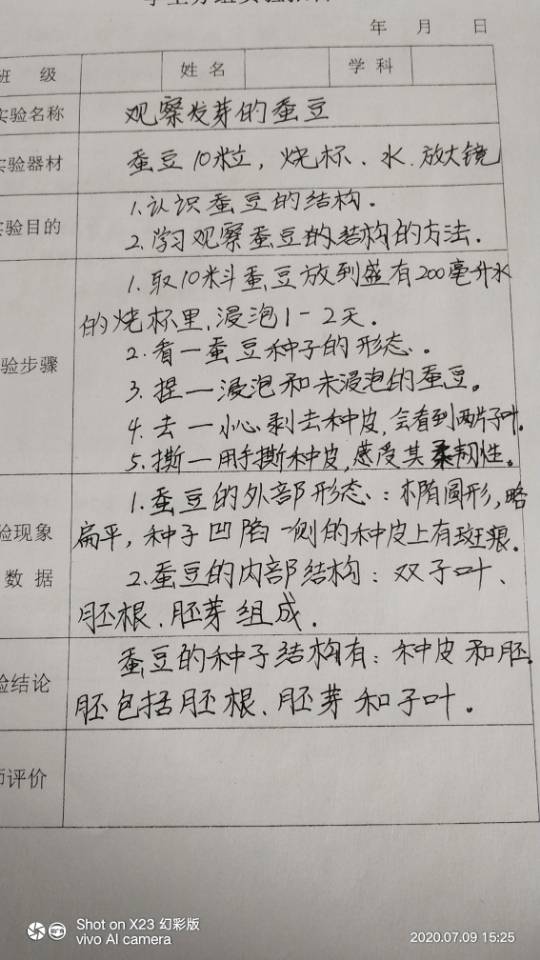 年 月 日
班 级 姓 名 学 科
实验名称 观察发芽的蚕豆
实验器材 蚕豆10粒，烧杯、水、放大镜
实验目的 1.认识蚕豆的结构.
2.学习观察蚕豆的结构的方法.
1.取10料蚕豆放到盛有200毫升水
的烧杯里,浸泡1-2天.
2.看一蚕豆种子的形态.
验步骤 3.捏一浸泡和未浸泡的蚕豆。
4.去一小心剥去种皮,会看到两片子叶.
5.撕一用手撕种皮,感受其柔韧性。
1.蚕豆的外部形态：椭圆形,略
验现象 扁平，种子凹陷一侧的种皮上有斑痕.
数 据 2.蚕豆的内部结构：双子叶、
胚根、胚芽组成.
蚕豆的种子结构有：种皮和胚.
验结论 胚包括胚根、胚芽和子叶。
师评价
Shot on X23 幻彩版
vivo AI camera
2020.07.09 15:25